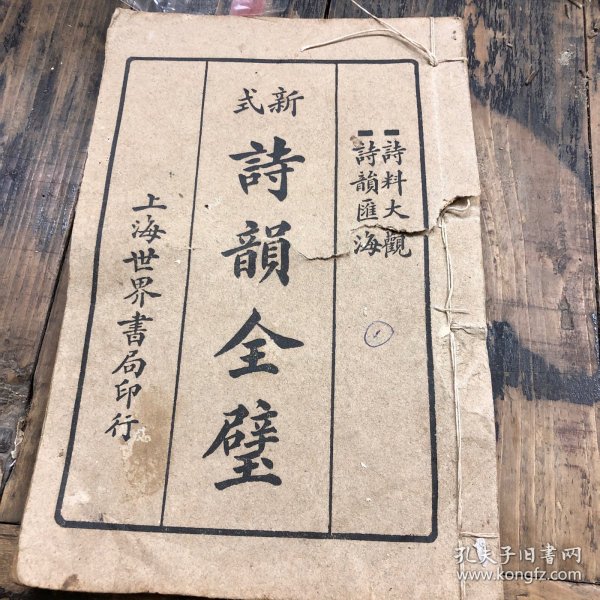 詩料大觀
詩韻匯海
新式
詩韻全璧
上海世界書局印行
1
孔夫子旧书网
www.kongfz.com